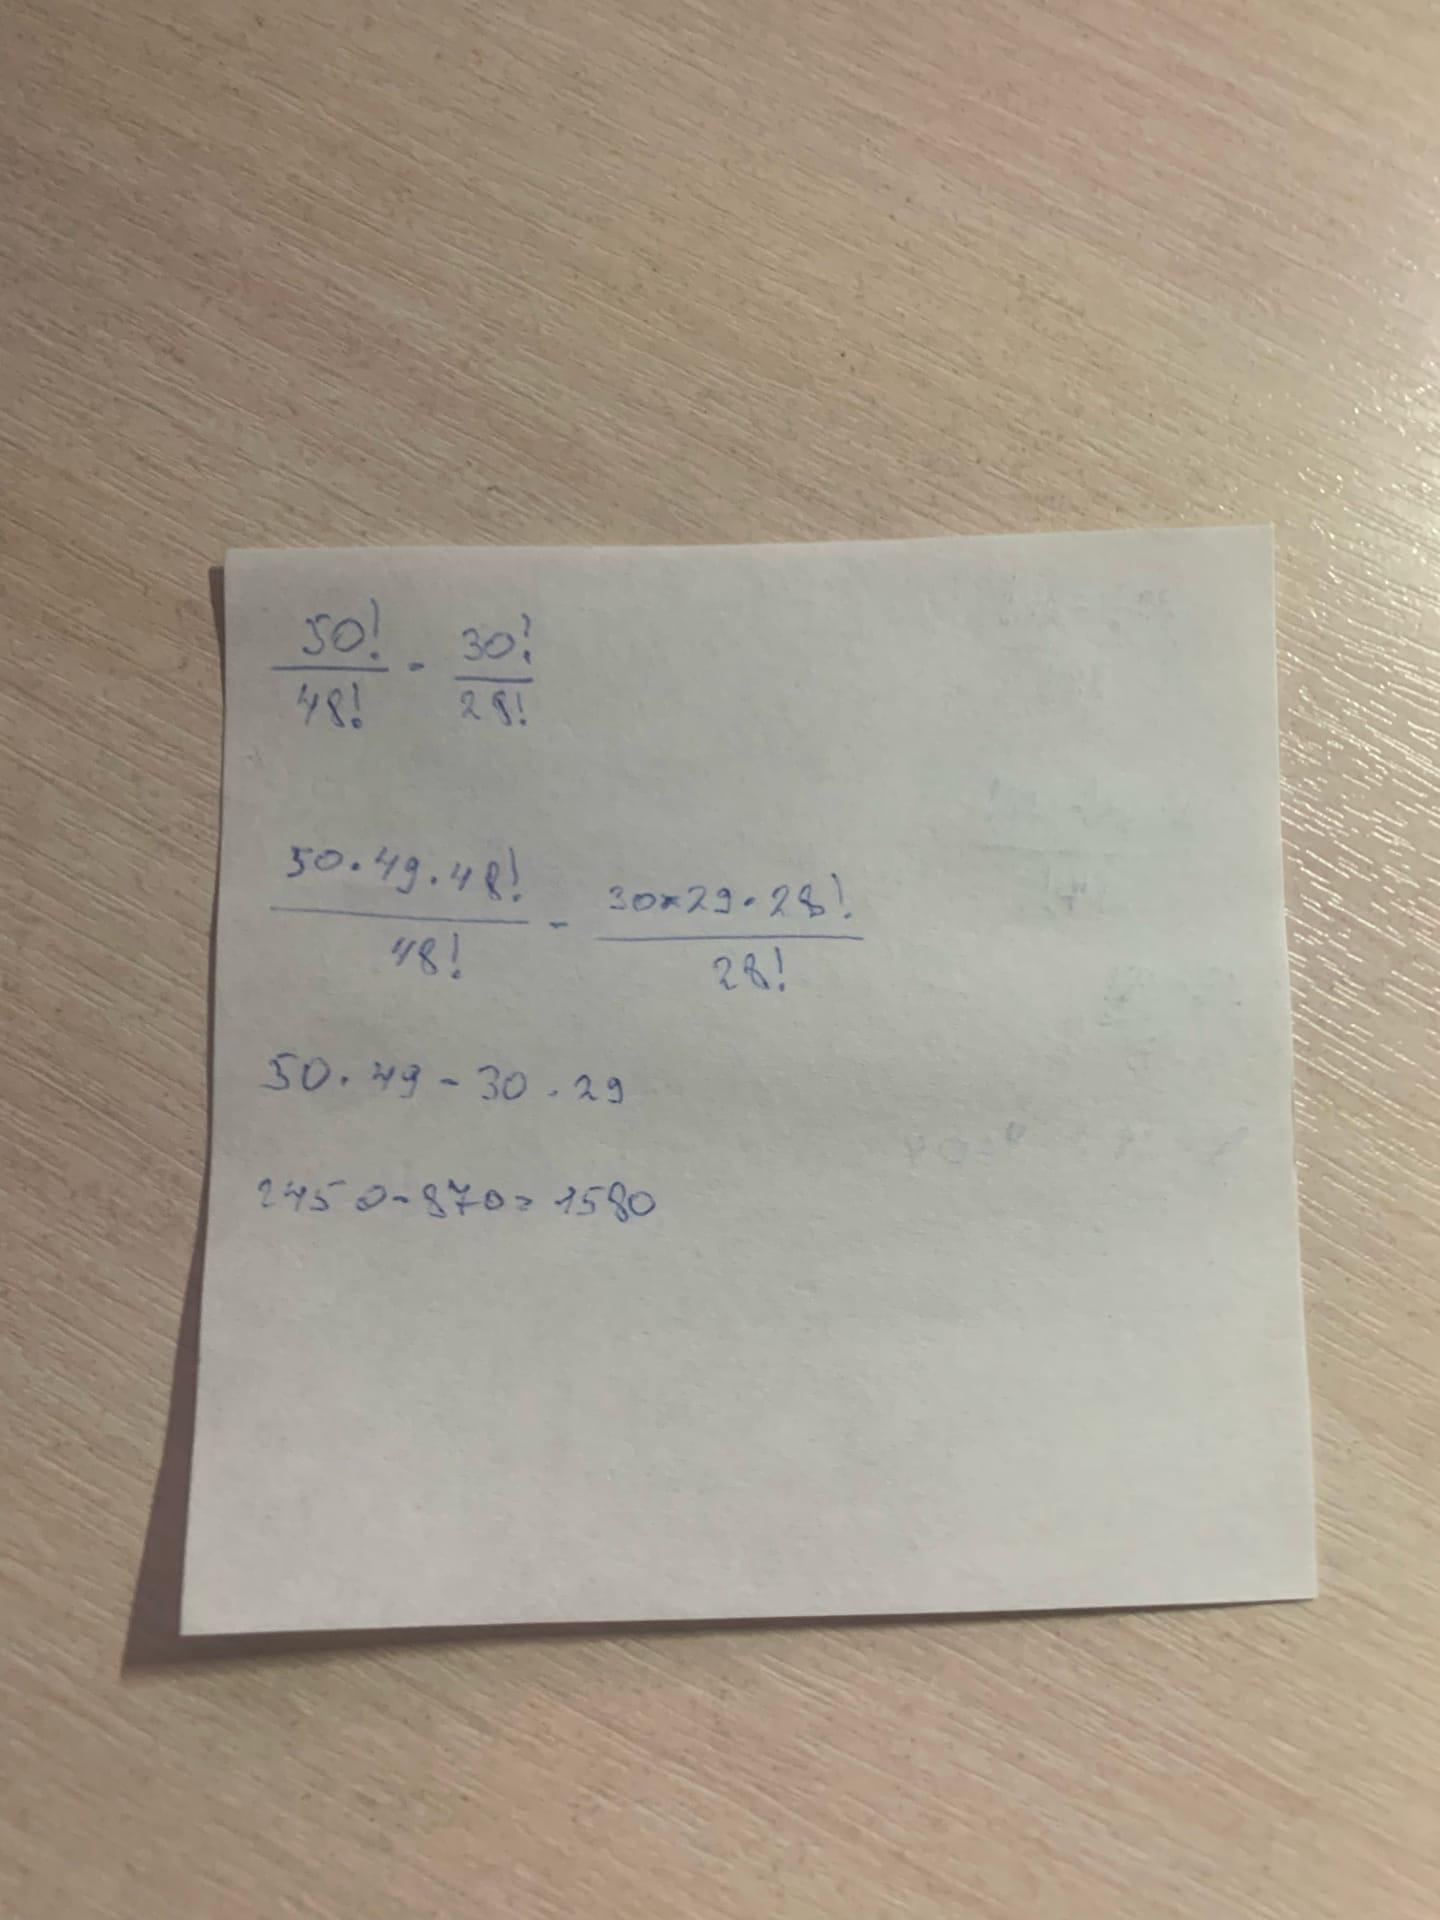 50!/48! - 30!/28!
50·49·48!/48! - 30×29·28!/28!
50·49-30·29
2450-870=1580